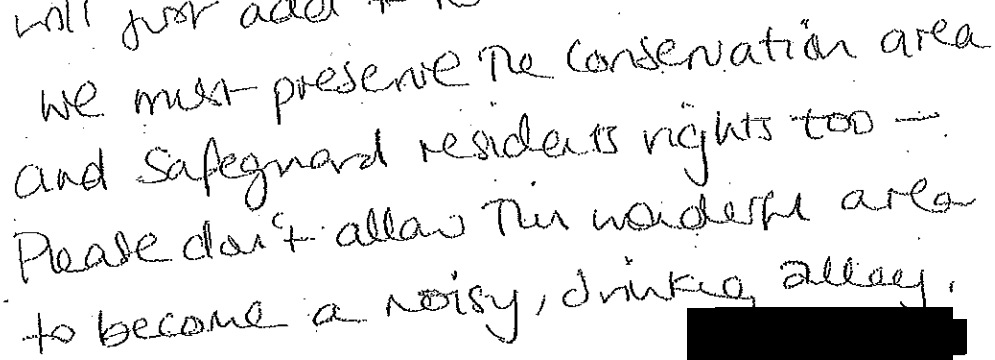 will just add to
We must preserve the conservation area
and safeguard residents rights too —
Please don't allow this wonderful area
to become a noisy, drinking alley.